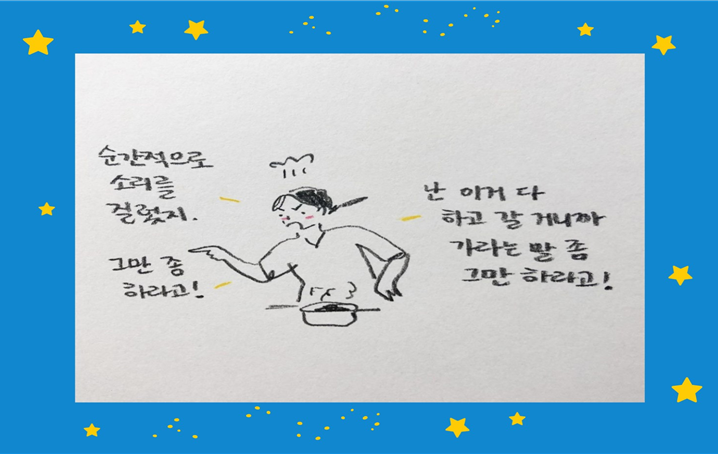 순간적으로
소리를
걸렀지.
그만 좀
하라고!
난 이거 다
하고 갈 거니까
가라는 말 좀
그만 하라고!